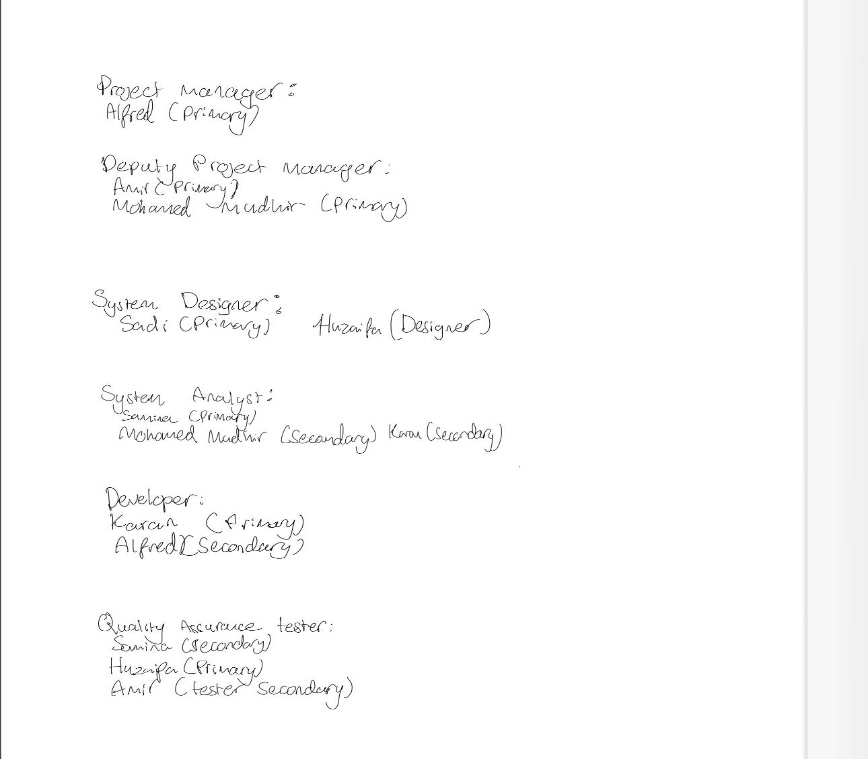 Project Manager:
Alfred (Primary)
Deputy Project Manager:
Amir (Primary)
Mohamed Mudhir (Primary)
System Designer:
Sadi (Primary) Huzaifa (Designer)
System Analyst:
Samina (Primary)
Mohamed Mudhir (Secondary) Karan (Secondary)
Developer:
Karan (Primary)
Alfred (Secondary)
Quality Assurance tester:
Samina (Secondary)
Huzaifa (Primary)
Amir (tester Secondary)